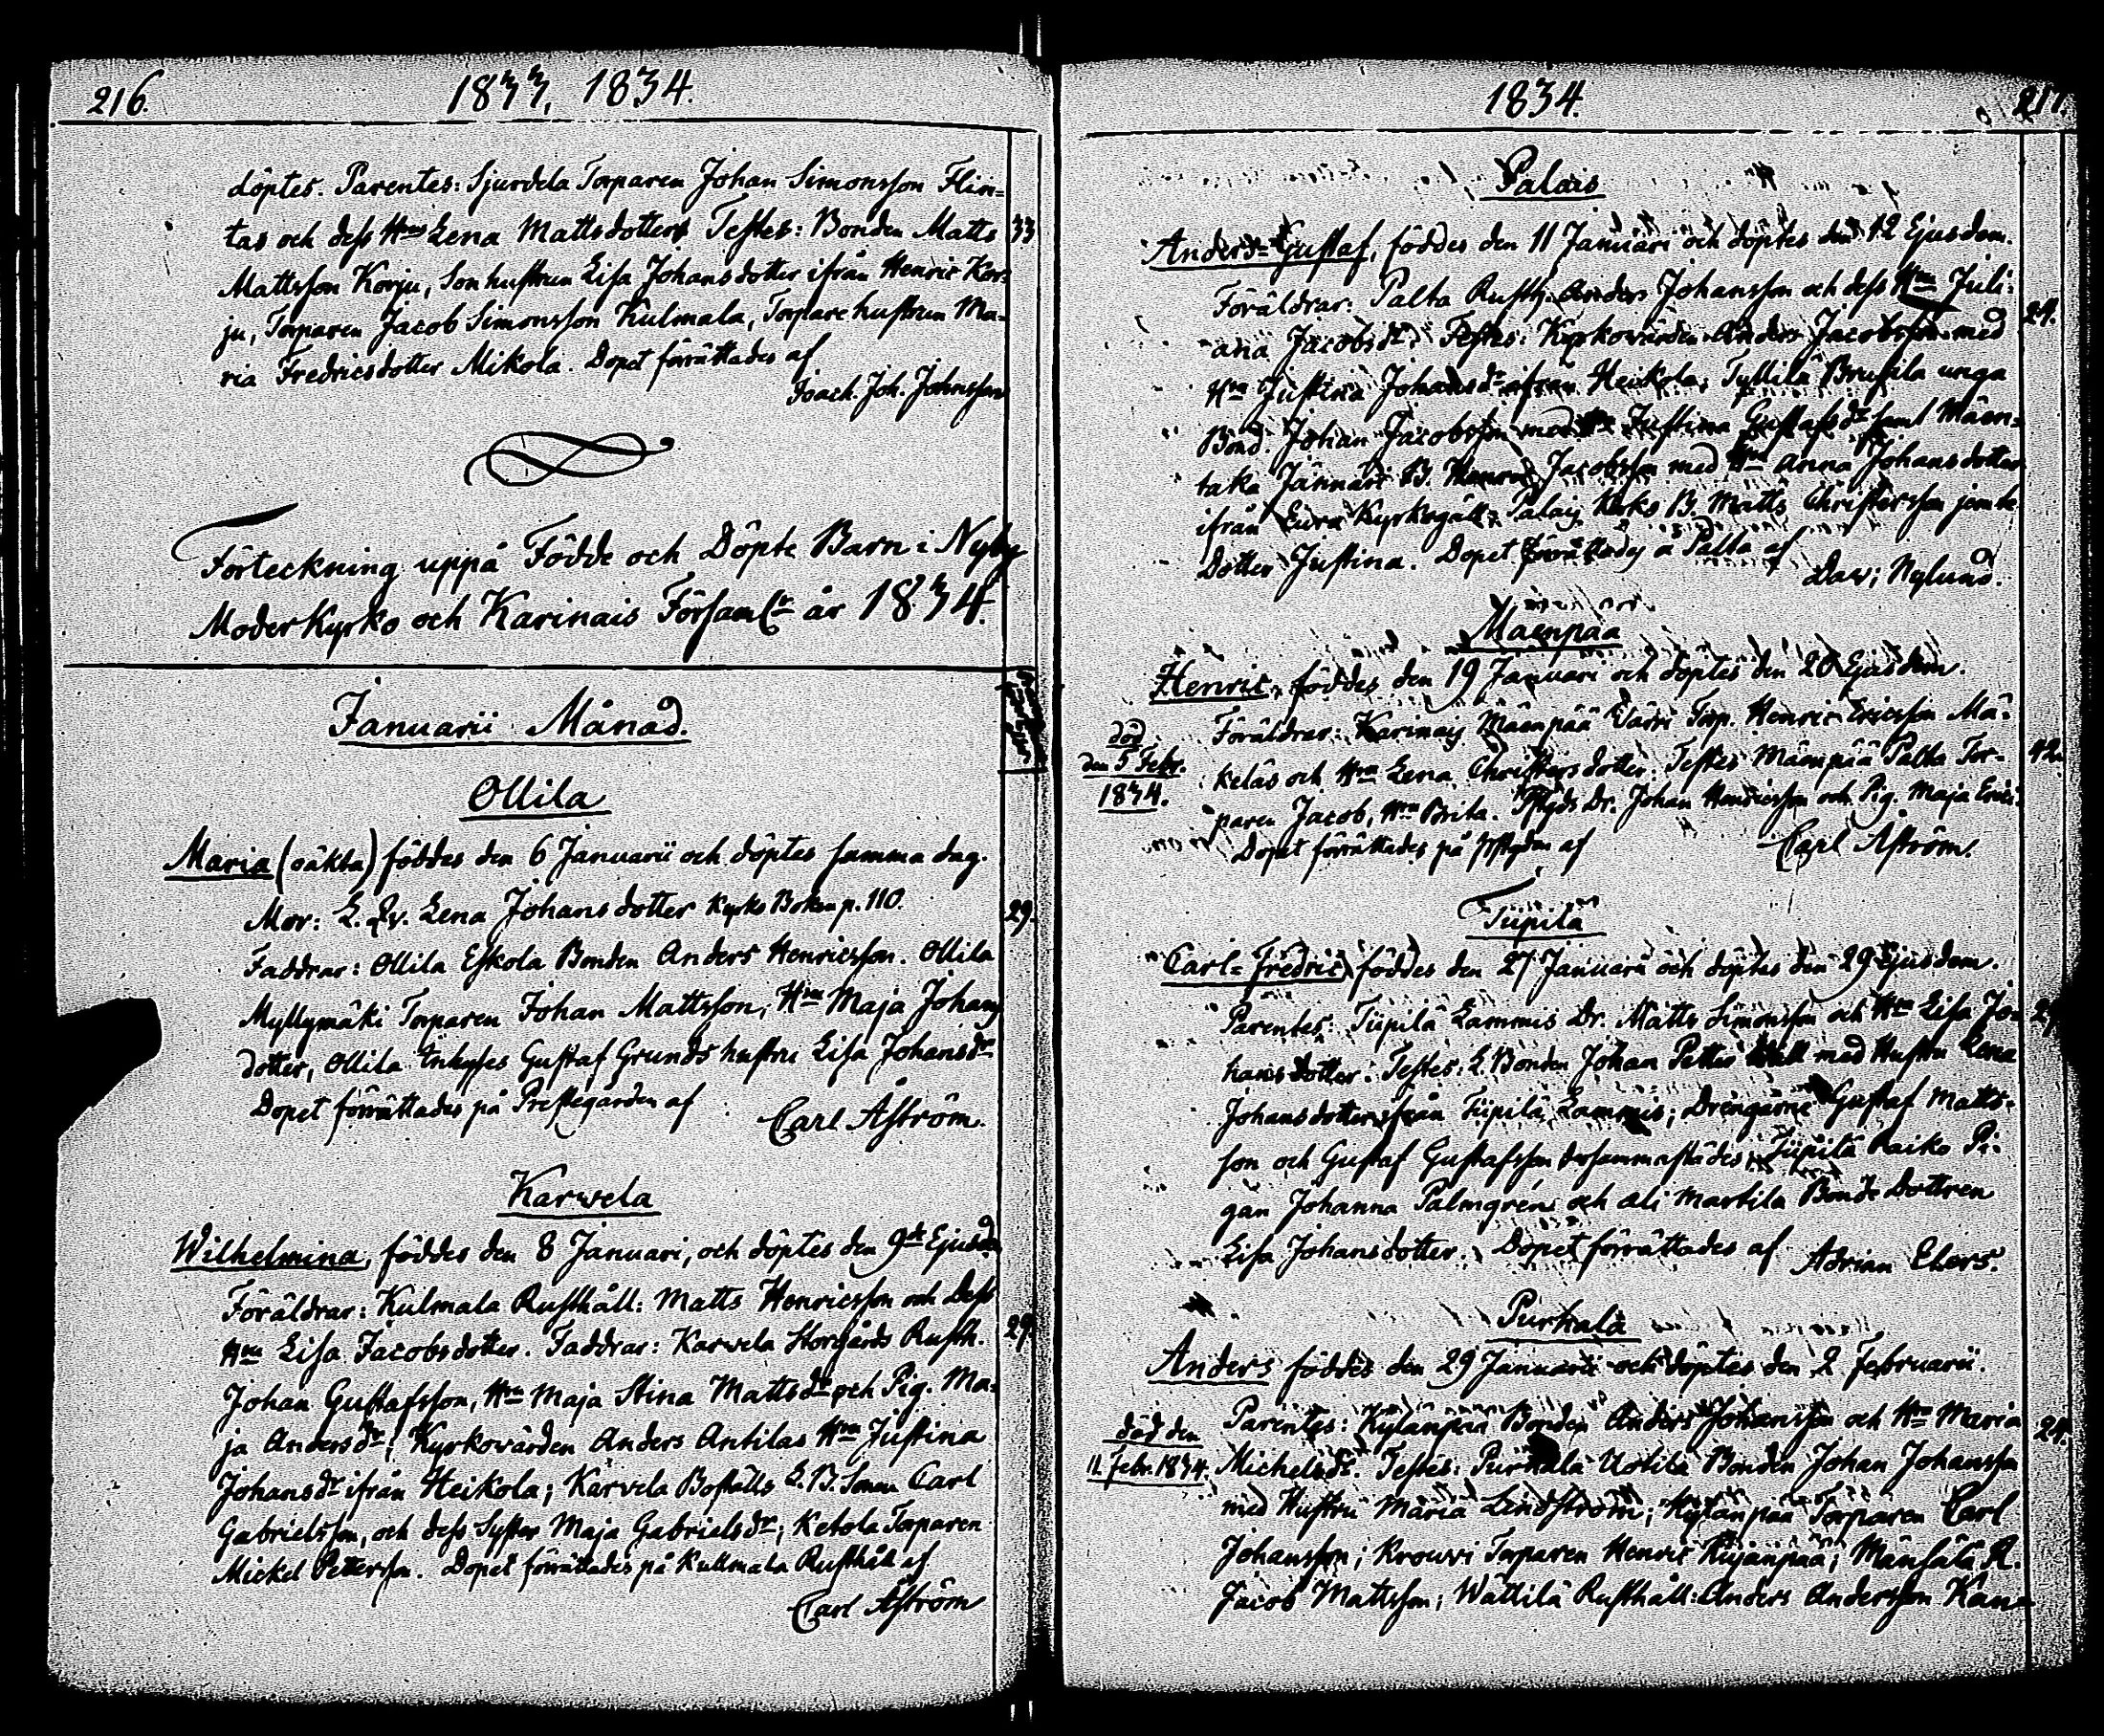 216.
1833, 1834.
döptes. Parentes: Sjurdela Torparen Johan Simonsson Flin=
tas och dess Hru Lena Mattsdotter. Testes: Bonden Matts
33
Mattsson Korju, Sonhustrun Lisa Johansdotter ifrån Henric Kor=
ju, Torparen Jacob Simonsson Kulmala, Torparehustrun Ma=
ria Fredricsdotter Mikola. Dopet förrättades af
Joach. Joh. Johnsson
Förteckning uppå Födde och Döpte Barn i Nyby
Moderkyrko och Karinais Församlr år 1834.
Januarii Månad.
Ollila
Maria (oäkta) föddes den 6 Januarii och döptes samma dag.
Mor: L. Qv. Lena Johansdotter Kyrko Boken p. 110.
29.
Faddrar: Ollila Eskola Bonden Anders Henricsson. Ollila
Myllymäki Torparen Johan Mattsson, Hru Maja Johans
dotter, Ollila Inhyses Gustaf Grunds hustru Lisa Johansdr
Dopet förrättades på Prestegården af
Carl Åström.
Karwela
Wilhelmina, föddes den 8 Januari, och döptes den 9de Ejusd
Föräldrar: Kulmala Rusthåll: Matts Henricsson och Dess
Hru Lisa Jacobsdotter. Faddrar: Karwela Storgårds Rusth.
29.
Johan Gustafsson, Hru Maja Stina Mattsdr och Pig. Ma=
ja Andersdr; Kyrkovärden Anders Antilas Hru Justina
Johansdr ifrån Heikola; Karvela Boställs L. B. Sonen Carl
Gabrielsson, och dess Syster Maja Gabrielsdr; Ketola Torparen
Mickel Pettersson. Dopet förrättades på Kullmala Rusthåll af
Carl Åström
1834.
217.
Palais
Anders=Gustaf, föddes den 11 Januari och döptes den 12 Ejusdem.
Föräldrar: Palta Rusth. Anders Johansson och dess Hru Juli=
24.
ana Jacobsdr. Testes: Kyrkovärden Anders Jacobsson med
Hru Justina Johansdr ifrån Heikola; Tyllilä Brusila unga
Bond. Johan Jacobsson med Justina Gustafsdr samt Mäen=
taka Jännäri B. Henric Jacobsson med Hru Anna Johansdotter
ifrån Eura Kyrkogäll; Palais B. Matts Christersson jemte
Dotter Justina. Dopet förrättades å Palta af
Dav: Nylund.
Mäenpää
Henric, föddes den 19 Januari och döptes den 20 Ejusdem.
död
den 5 Febr.
1834.
Föräldrar: Karinais Mäenpää Värri Torp. Henric Ericsson Mä=
keläs och Hru Lena Christersdotter. Testes Mäenpää Palta Tor=
42.
paren Jacob, Hru Brita. Dr. Johan Henricsson och Pig. Maja Erics
Dopet förrättades på af
Carl Åström.
Tiipilä
Carl=Fredric, föddes den 27 Januarii och döptes den 29 Ejusdem.
Parentes: Tiipilä Lammis Dr. Matts Simonsson och Hru Lisa Jo=
hansdotter. Testes: L. Bonden Johan Petter med Hustru Lena
Johansdotter från Tiipilä Lammis; Drängarne Gustaf Matts=
son och Gustaf Gustafsson dersammastädes; Tiipilä Raiko Pi=
gan Johanna Palmgren och Ali Markila Bonde Dottren
Lisa Johansdotter. Dopet förrättades af Adrian Elers.
Purhala
Anders föddes den 29 Januarii och döptes den 2 Februarii.
död den
11 Febr. 1834.
Parentes: Kylänpää Bonden Anders Johansson och Hru Maria
24.
Michelsdr. Testes: Purhala Uotila Bonden Johan Johansson
med Hustru Maria Lindström; Kylänpää Torparen Carl
Johansson; Krouvi Torparen Henric Kujanpää; Mänsälä R.
Jacob Mattsson; Wättilä Rusthåll: Anders Andersson Kan=